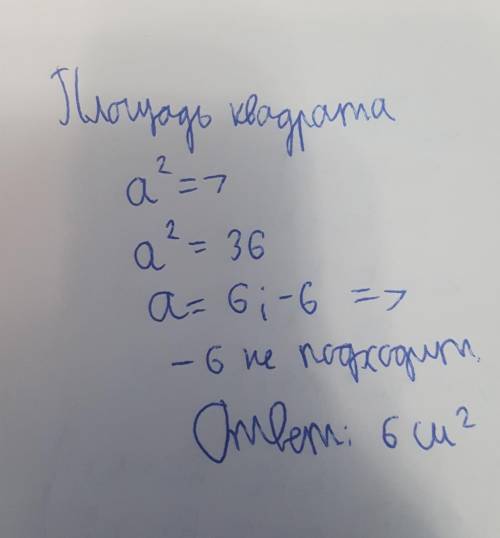 Площадь квадрата
a² =>
a² = 36
a = 6; -6 =>
-6 не подходит.
Ответ: 6 см²